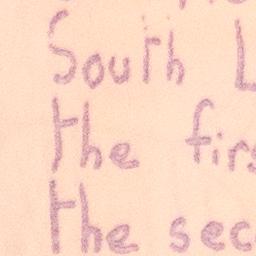 South L
the firs
the seco